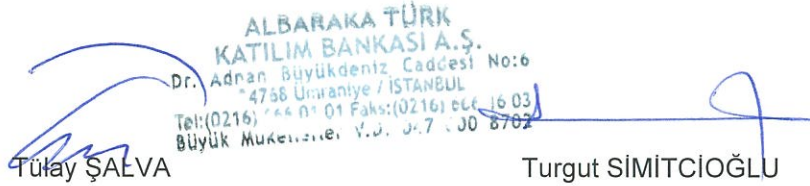 ALBARAKA TÜRK
KATILIM BANKASI A.Ş.
Dr. Adnan Büyükdeniz Caddesi No:6
4768 Ümraniye / İSTANBUL
Tel:(0216) 01 01 Faks:(0216) 16 03
Büyük V.D. 00 8702
Tülay ŞALVA
Turgut SİMİTCİOĞLU